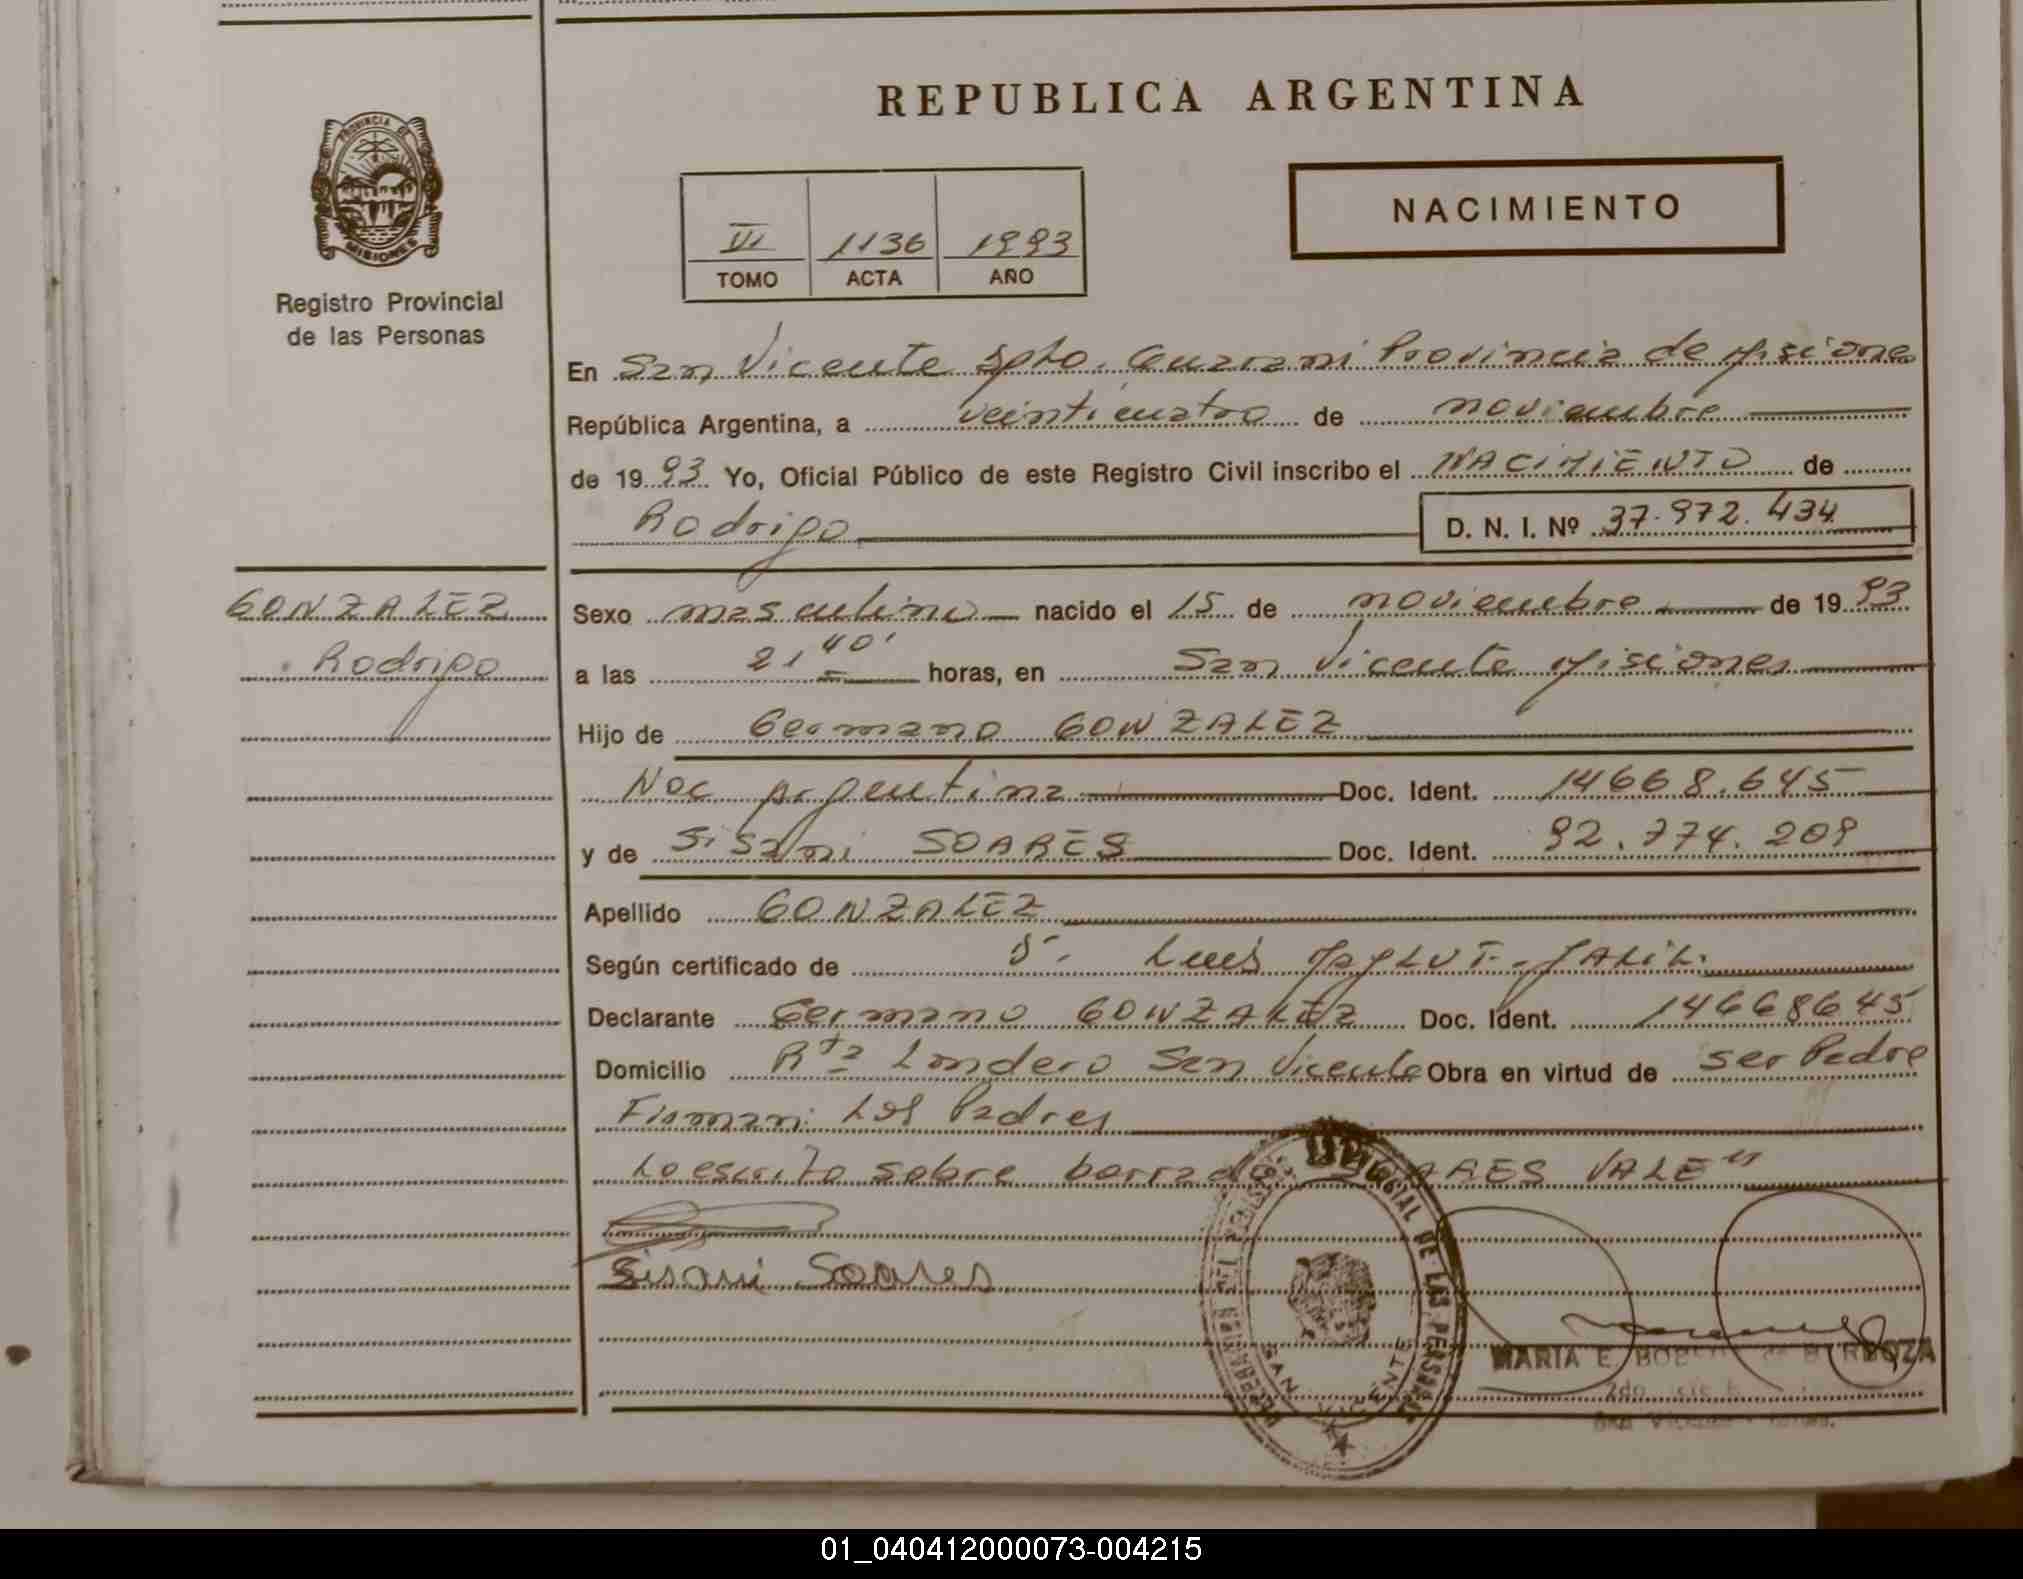 REPUBLICA ARGENTINA
PROVINCIA DE
MISIONES
Registro Provincial
de las Personas
NACIMIENTO
VI 1136 1993
TOMO ACTA AÑO
En San Vicente Dpto. Guarani Provincia de Misiones
República Argentina, a veinticuatro de noviembre
de 1993 Yo, Oficial Público de este Registro Civil inscribo el NACIMIENTO de
Rodrigo D. N. I. Nº 37.972.434
GONZALEZ
Rodrigo
Sexo masculino nacido el 15 de noviembre de 1993
a las 21 40' horas, en San Vicente Misiones
Hijo de Germano GONZALEZ
Nac Argentina Doc. Ident. 14668.645
y de Sisani SOARES Doc. Ident. 92.774.209
Apellido GONZALEZ
Según certificado de Luis JALIL.
Declarante Germano GONZALEZ Doc. Ident. 14668645
Domicilio Rta Londero San Vicente Obra en virtud de ser Padre
Firman: Los Padres
Lo escrito sobre borrado SOARES VALE"
Sisani Soares
PROVINCIAL DE LAS PERSONAS
SAN VICENTE
MARIA E
01_040412000073-004215